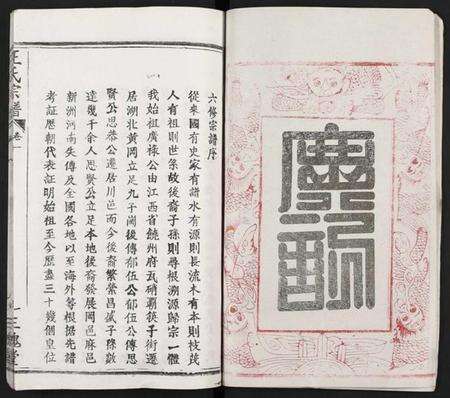 六修宗譜序
從來國有史家有譜水有源則長流木有本則枝茂
人有祖則世系故後裔子孫則尋根溯源歸宗一體
我始祖廣祿公由江西省饒州府瓦硝霸筷子街遷
居湖北黃岡立足九子南後傳郁伍公郁伍公傳思
賢公思恭公遷居川邑而今後裔繁榮昌盛子孫數
達幾千余人思賢公立足本地後裔發展岡邑麻邑
新洲河南失傳及全國各地以至海外等根据先譜
考証歷朝代表証明始祖至今歷盡三十幾個皇位
王氏宗譜
卷一
三槐堂